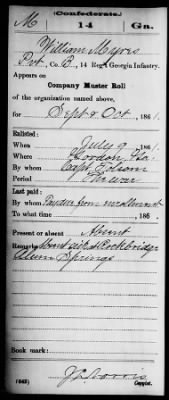 (Confederate.)
M 14 Ga.
William Mayors
Pvt, Co. B, 14 Reg't Georgia Infantry.
Appears on
Company Muster Roll
of the organization named above,
for Sept & Oct, 1861.
Enlisted:
When July 9, 1861.
Where Gordon, Ga.
By whom Capt. Folsom
Period the war
Last paid:
By whom Paid for from enrollment
To what time , 186 .
Present or absent Absent
Remarks: Absent sick at Rockbridge
Alum Springs
Book mark:
(642) Copyist.